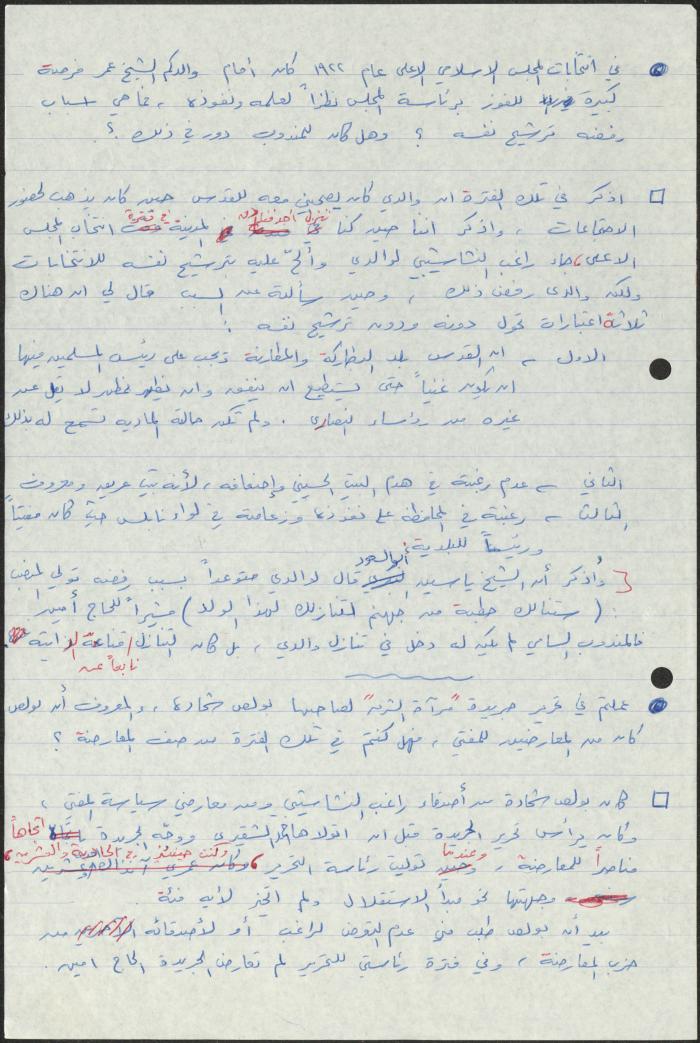 في انتخابات المجلس الاسلامي الاعلى عام ١٩٢٢ كان أمام والدكم الشيخ عمر فرصة
كبيرة للفوز برئاسة المجلس نظراً لعلمه ونفوذه، فما هي اسباب
رفضه ترشيح نفسه ؟ وهل كان للمندوب دور في ذلك ؟.
اذكر في تلك الفترة ان والدي كان يصحبني معه للقدس حين كان يذهب لحضور
الاجتماعات، واذكر اننا حين كنا ننزل احد فنادق المدينة في فترة انتخاب المجلس
الاعلى، جاء راغب النشاشيبي لوالدي وألحّ عليه بترشيح نفسه للانتخابات
ولكن والدي رفض ذلك، وحين سألته عن السبب قال لي ان هناك
ثلاثة اعتبارات تحول دونه ودون ترشيح نفسه :
الاول - ان القدس بلد البطاركة والمطارنة ويجب على رئيس المسلمين فيها
ان يكون غنياً حتى يستطيع ان ينفق وان يظهر بمظهر لا يقل عن
غيره من رؤساء النصارى. ولم تكن حالته المادية تسمح له بذلك
الثاني - عدم رغبته في هدم البيت الحسيني وإضعافه، لأنه بيت عريق ومعروف
الثالث - رغبته في المحافظة على نفوذه وزعامته في لواء نابلس حيث كان مفتياً
ورئيساً للبلدية.
وأذكر أن الشيخ ياسين أبو السعود قال لوالدي متوعداً بسبب رفضه تولي المنصب
: (ستنالك حطبة من جهنم لتنازلك لهذا الولد) مشيراً للحاج أمين
فالمندوب السامي لم يكن له دخل في تنازل والدي، بل كان التنازل نابعاً عن قناعة ذاتية
عملتم في تحرير جريدة "مرآة الشرق" لصاحبها بولص شحادة، والمعروف أن بولص
كان من المعارضين للمفتي، فهل كنتم في تلك الفترة من صف المعارضة ؟
كان بولص شحادة من أصدقاء راغب النشاشيبي ومن معارضي سياسة المفتي،
وكان يرأس تحرير الجريدة قبل ان اتولاها احمد الشقيري ووجّه الجريدة اتجاهاً
مناصراً للمعارضة، وعندما توليت رئاسة التحرير، وكنت حينئذ في الحادية والعشرين،
وجهتها نحو مبدأ الاستقلال ولم اتحيز لأية فئة
بيد أن بولص طلب مني عدم التعرض لراغب أو لأصدقائه من
حزب المعارضة، وفي فترة رئاستي للتحرير لم تعارض الجريدة الحاج امين.